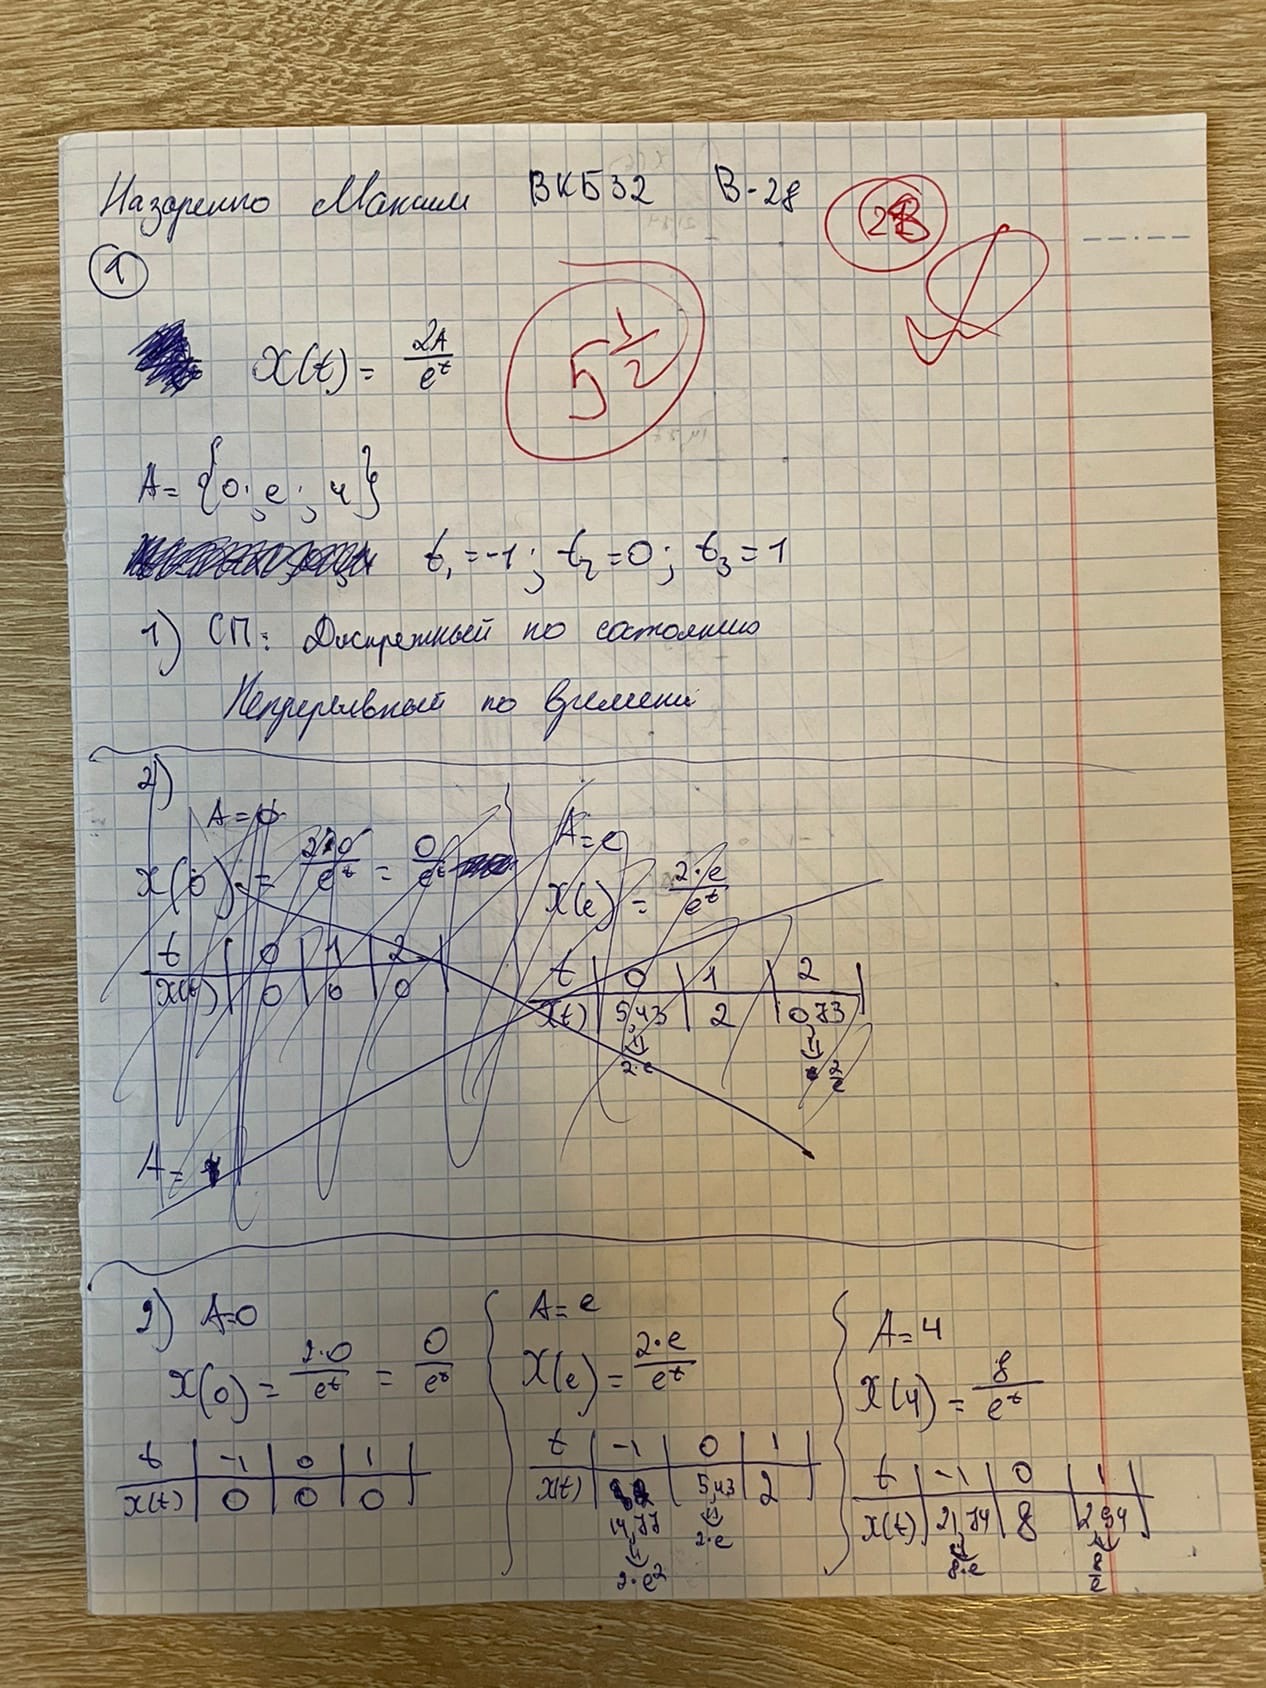 Назаренко Максим ВКБ32 В-28
1
5 1/2
X(t) = 2A/e^t
A = {0; e; 4}
t₁ = -1; t₂ = 0; t₃ = 1
1) СП: Дискретный по состоянию
Непрерывный по времени
2)
A = 0
X(0) = 2·0/e^t = 0/e^t
t | 0 | 1 | 2
X(t) | 0 | 0 | 0
A = e
X(e) = 2·e/e^t
t | 0 | 1 | 2
X(t) | 5,43 | 2 | 0,73
2·e
2/e
A =
2) A=0
X(0) = 2·0/e^t = 0/e^t
t | -1 | 0 | 1
X(t) | 0 | 0 | 0
A = e
X(e) = 2·e/e^t
t | -1 | 0 | 1
X(t) | 14,77 | 5,43 | 2
2·e² 2·e
A = 4
X(4) = 8/e^t
t | -1 | 0 | 1
X(t) | 21,74 | 8 | 2,94
8·e 8/e